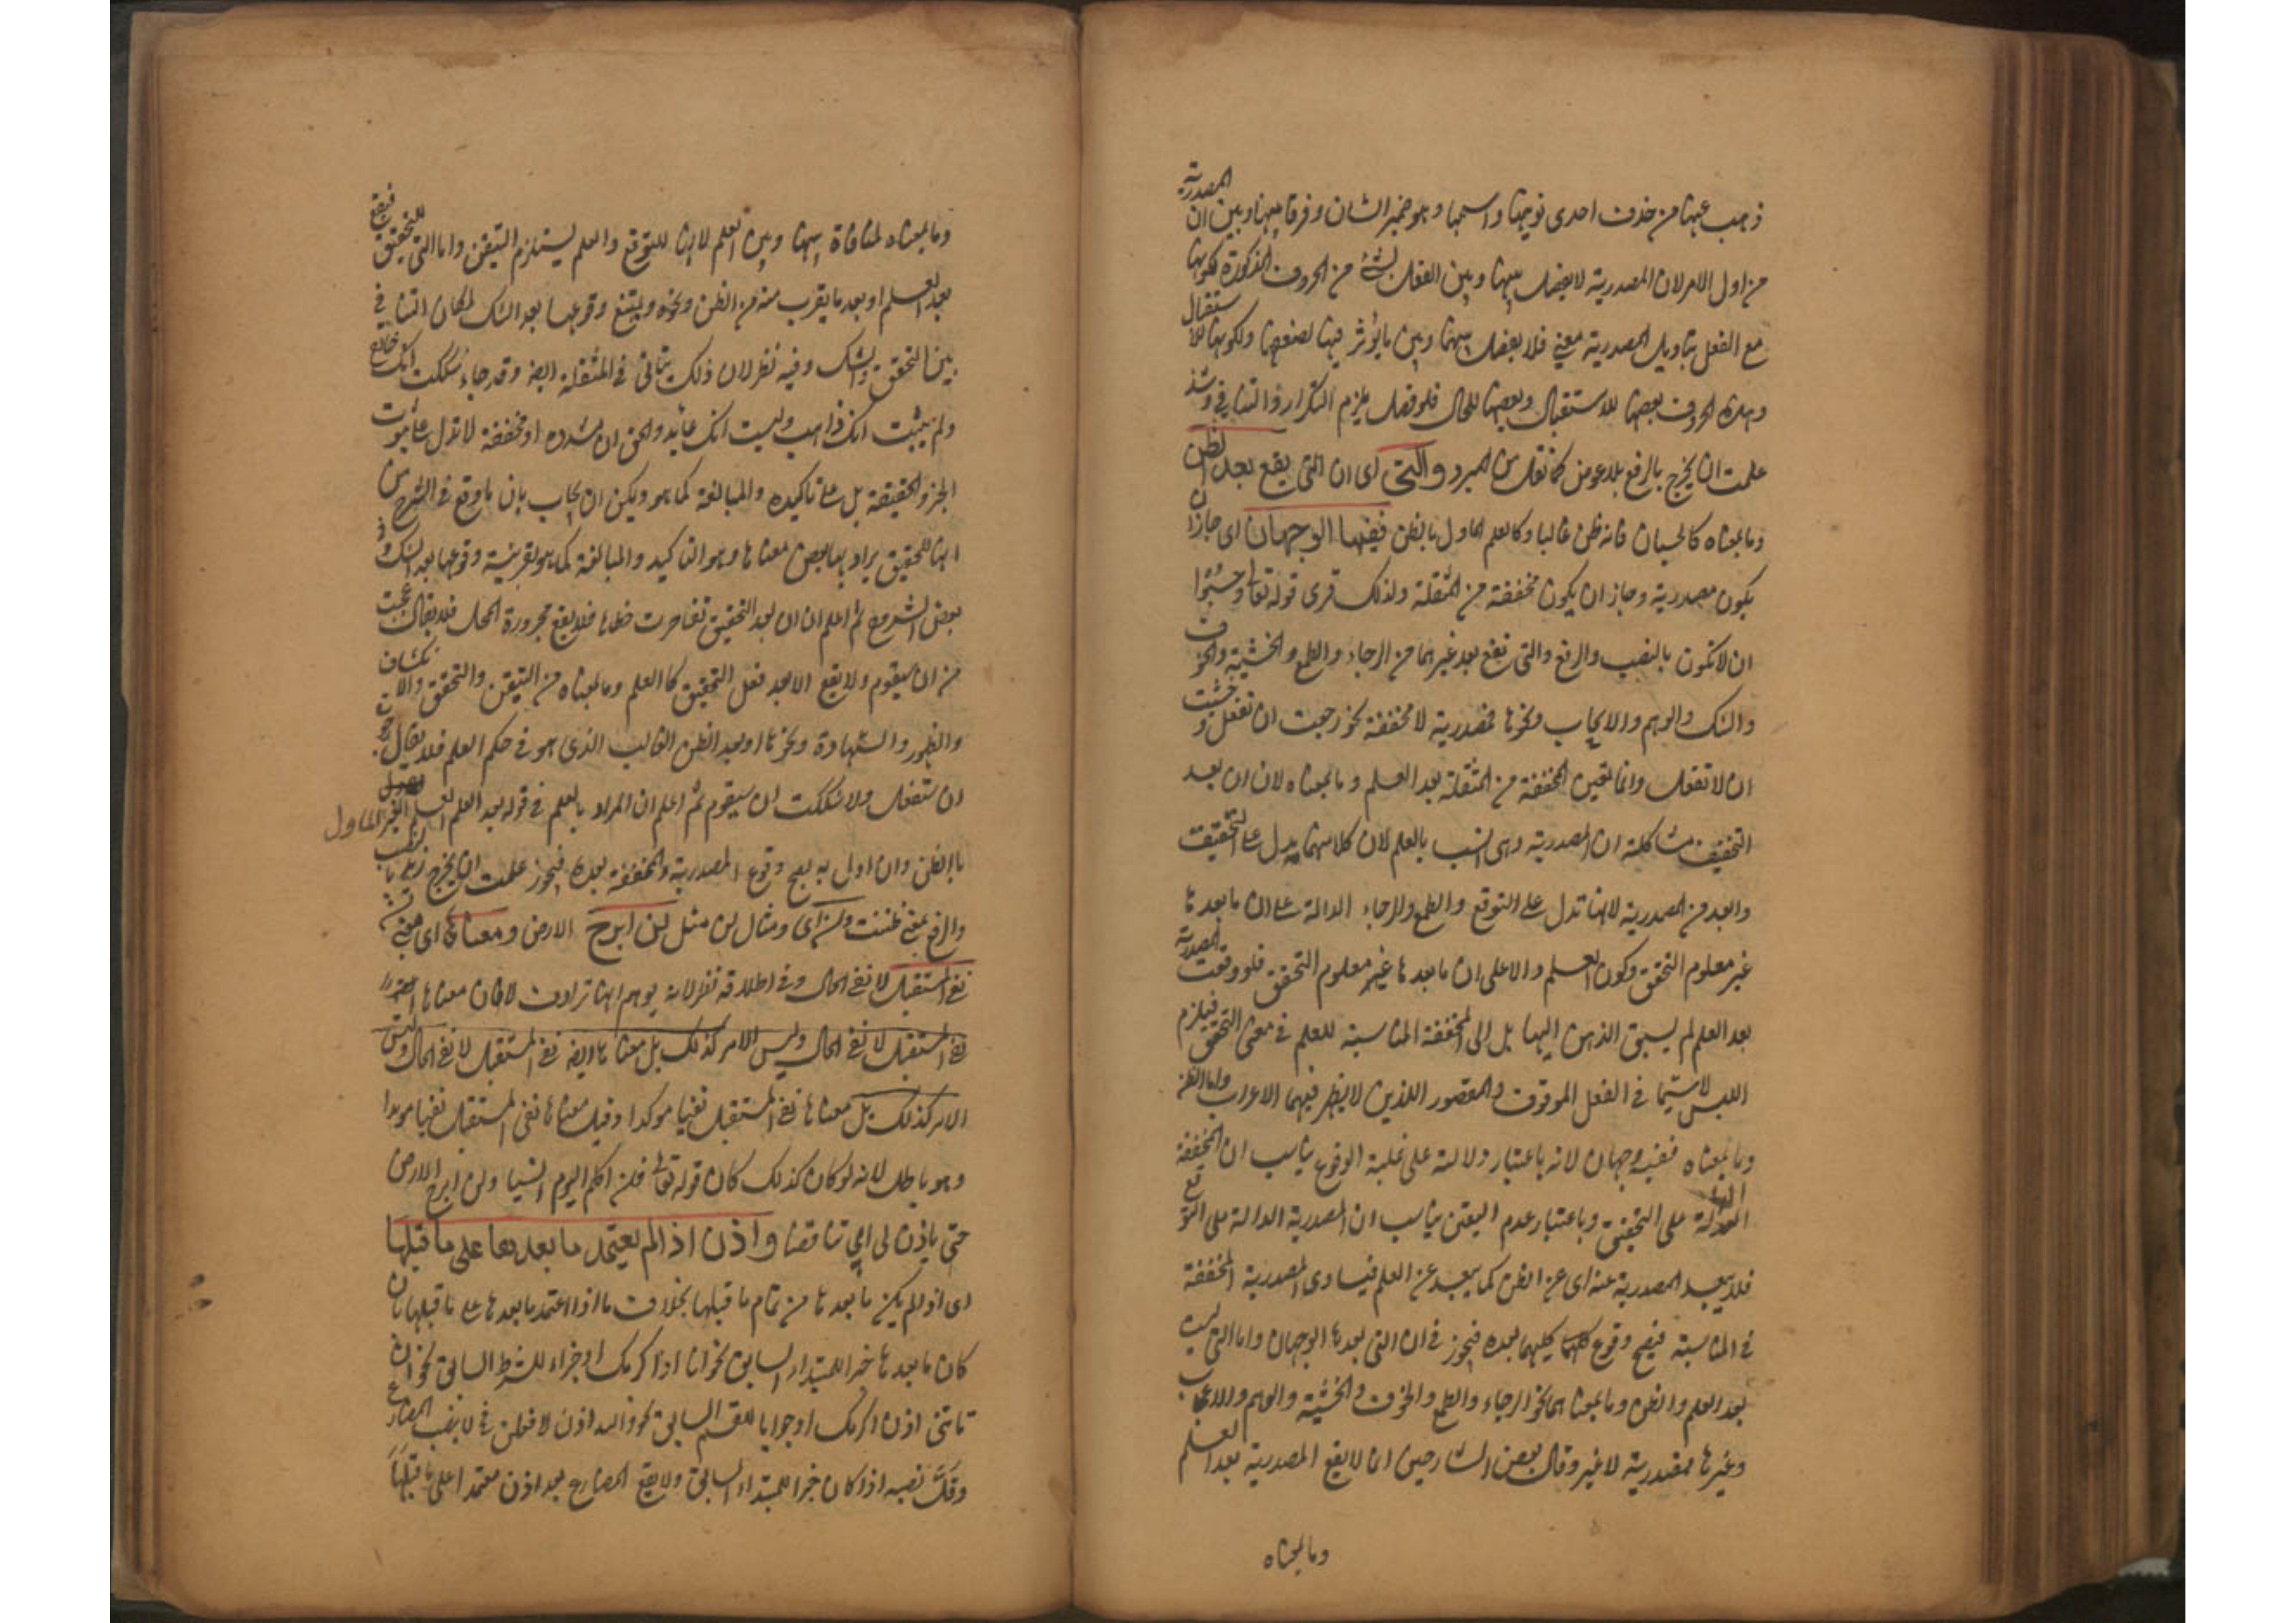 ذهب عنها من حذف احدى نونيها واسمها وهو ضمير الشان وفرقا بينها وبين ان المصدرية
من اول الامر لان المصدرية لا يفصل بينها وبين الفعل بشئ من الحروف المذكورة لكونها
مع الفعل بتاويل المصدرية معنى فلا يفصل بينها وبين ما يؤثر فيها لضعفها ولكونها للاستقبال
وهذه الحروف بعضها للاستقبال وبعضها للحال فلو فصل يلزم التكرار والتنافي وشذ
علمت ان يخرج بالرفع بلا عوض كما نقل عن المبرد والتى اى ان التى يقع بعد الظن
وما بمعناه كالحسبان فانه ظن غالبا وكالعلم الماول بالظن ففيها الوجهان اى جاز ان
يكون مصدرية وجاز ان يكون مخففة من المثقلة ولذلك قرى قوله تعالى وحسبوا
ان لا تكون بالنصب والرفع والتى تقع بعد غيرهما من الرجاء والطمع والخشية والخوف
والشك والوهم والايجاب ونحوها مصدرية لا مخففة نحو رجوت ان تفعل وخشيت
ان لا تفعل وانما تتعين المخففة من المثقلة بعد العلم وما بمعناه لان ان بعد
التخفيف مشاكلة ان المصدرية وهى انسب بالعلم لان كلا منهما يدل على التحقيق
وابعد من المصدرية لانها تدل على التوقع والطمع والرجاء الدالة على ان ما بعدها
غير معلوم التحقق وكون العلم والا على ان ما بعدها غير معلوم التحقق فلو وقعت المصدرية
بعد العلم لم يسبق الذهن اليها بل الى المخففة المناسبة للعلم في معنى التحقق فيلزم
اللبس لا سيما في الفعل الموقوف والمقصور اللذين لا يظهر فيهما الاعراب واما الظن
وما بمعناه ففيه وجهان لانه باعتبار دلالته على غلبة الوقوع يناسب ان المخففة
الدالة على التحقيق وباعتبار عدم اليقين يناسب ان المصدرية الدالة على التوقع
فلا يبعد المصدرية عنه اى عن الظن كما يبعد عن العلم فيساوى المصدرية المخففة
في المناسبة فيصح وقوع كليهما بعده فيجوز في ان التى بعدها الوجهان واما التى ليست
بعد العلم والظن وما بمعناهما نحو الرجاء والطمع والخوف والخشية والوهم والاعجاب
وغيرها فمصدرية لا غير وقال بعض الشارحين انما لا يقع المصدرية بعد العلم
وما بمعناه
وما بمعناه لمنافاة بينها وبين العلم لانها للتوقع والعلم يستلزم التيقن واما التى للتحقيق فيقع
بعد العلم او بعد ما يقرب منه من الظن ونحوه ويمتنع وقوعها بعد الشك لمكان التنافي
بين التحقق والشك وفيه نظر لان ذلك يتاتى في المثقلة ايضا وقد جاء شككت انك خارج
ولم يثبت انك ذاهب وليت انك عائد والحق ان مشدده او مخففة لا تدل على ثبوت
الجزء الحقيقة بل على تاكيده والمبالغة كما هو ويكن ان يجاب بان ما وقع في الشرح من
انها للتحقيق يراد بها بعض معناها وهو التاكيد والمبالغة كما هو بقرينة وقوعها بعد الشك وفي
بعض الشروح ثم اعلم ان ان بعد التحقيق تقاصرت خطاها فلا يقع مجرورة المحل فلا يقال عجبت
من ان سيقوم ولا يقع الا بعد فعل التحقيق كالعلم وما بمعناه من التيقن والتحقق والانكشاف
والظهور والشهادة ونحوها او بعد الظن الغالب الذى هو في حكم العلم فلا يقال رجوت
ان ستفعل ولا شككت ان سيقوم ثم اعلم ان المراد بالعلم في قوله بعد العلم العلم الغير الماول
بالظن وان اول به يصح وقوع المصدرية والمخففة بعده فيجوز علمت ان يخرج زيد بالنصب
والرفع بمعنى ظننت ولن اى ومثال لن مثل لن ابرح الارض ومعناها اى معنى لن
نفى المستقبل لا نفى الحال وفي اطلاقه نظر لانه يوهم انها ترادف لا فان معناها ايضا
نفى المستقبل لا نفى الحال وليس الامر كذلك بل معناها ايضا نفى المستقبل لا نفى الحال وليس
الامر كذلك بل معناها نفى المستقبل نفيا موكدا وقيل معناها نفى المستقبل نفيا موبدا
وهو باطل لانه لو كان كذلك كان قوله تعالى فلن اكلم اليوم انسيا ولن ابرح الارض
حتى ياذن لى ابي تناقضا واذن اذا لم يعتمد ما بعدها على ما قبلها
اى اذا لم يكن ما بعدها من تمام ما قبلها بخلاف ما اذا اعتمد ما بعدها على ما قبلها بان
كان ما بعدها خبرا للمبتداء السابق نحو انا اذا اكرمك او جزاء للشرط السابق نحو ان
تاتنى اذن اكرمك او جوابا للقسم السابق نحو والله اذن لافعلن في لا ينصب المضارع
وقل نصبه اذا كان خبرا للمبتداء السابق ولا يقع المضارع بعد اذن معتمدا على ما قبلها